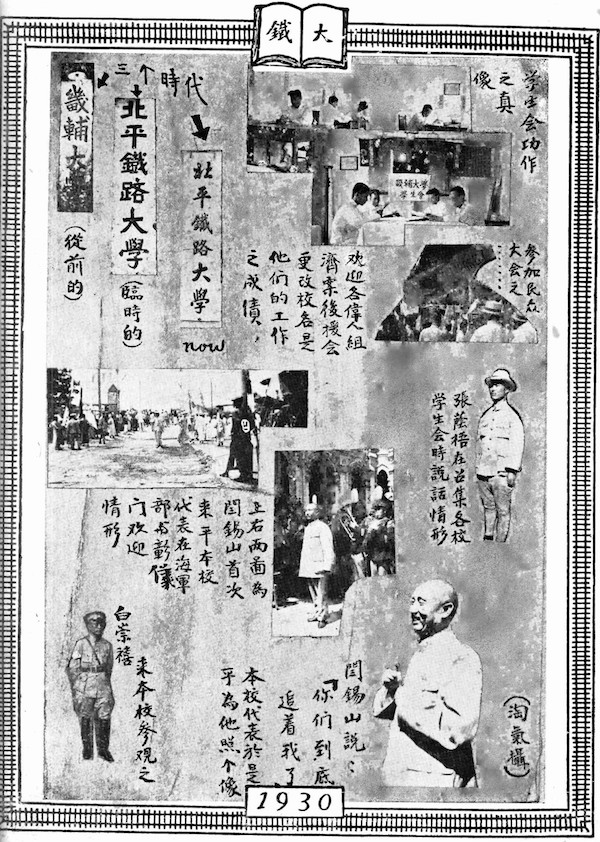 大鐵
学生会功作
之真
像
畿輔大學
學生會
參加民众
大会之……
三个時代
畿輔大學
(從前的)
北平鐵路大學
(臨時的)
北平鐵路大學。
now
欢迎各偉人組
濟案後援会
更改校名是
他们的工作
之成債,
張蔭梧在召集各校
学生会時說話情形
上右两面為
閻錫山首次
来平本校
代表在海軍
部 彰儀
门欢迎
情形
閻錫山説:
「你们到底
追着我了
本校代表於是
乎為他照个像
(淘氣攝)
白崇禧
来本校参观之
1930